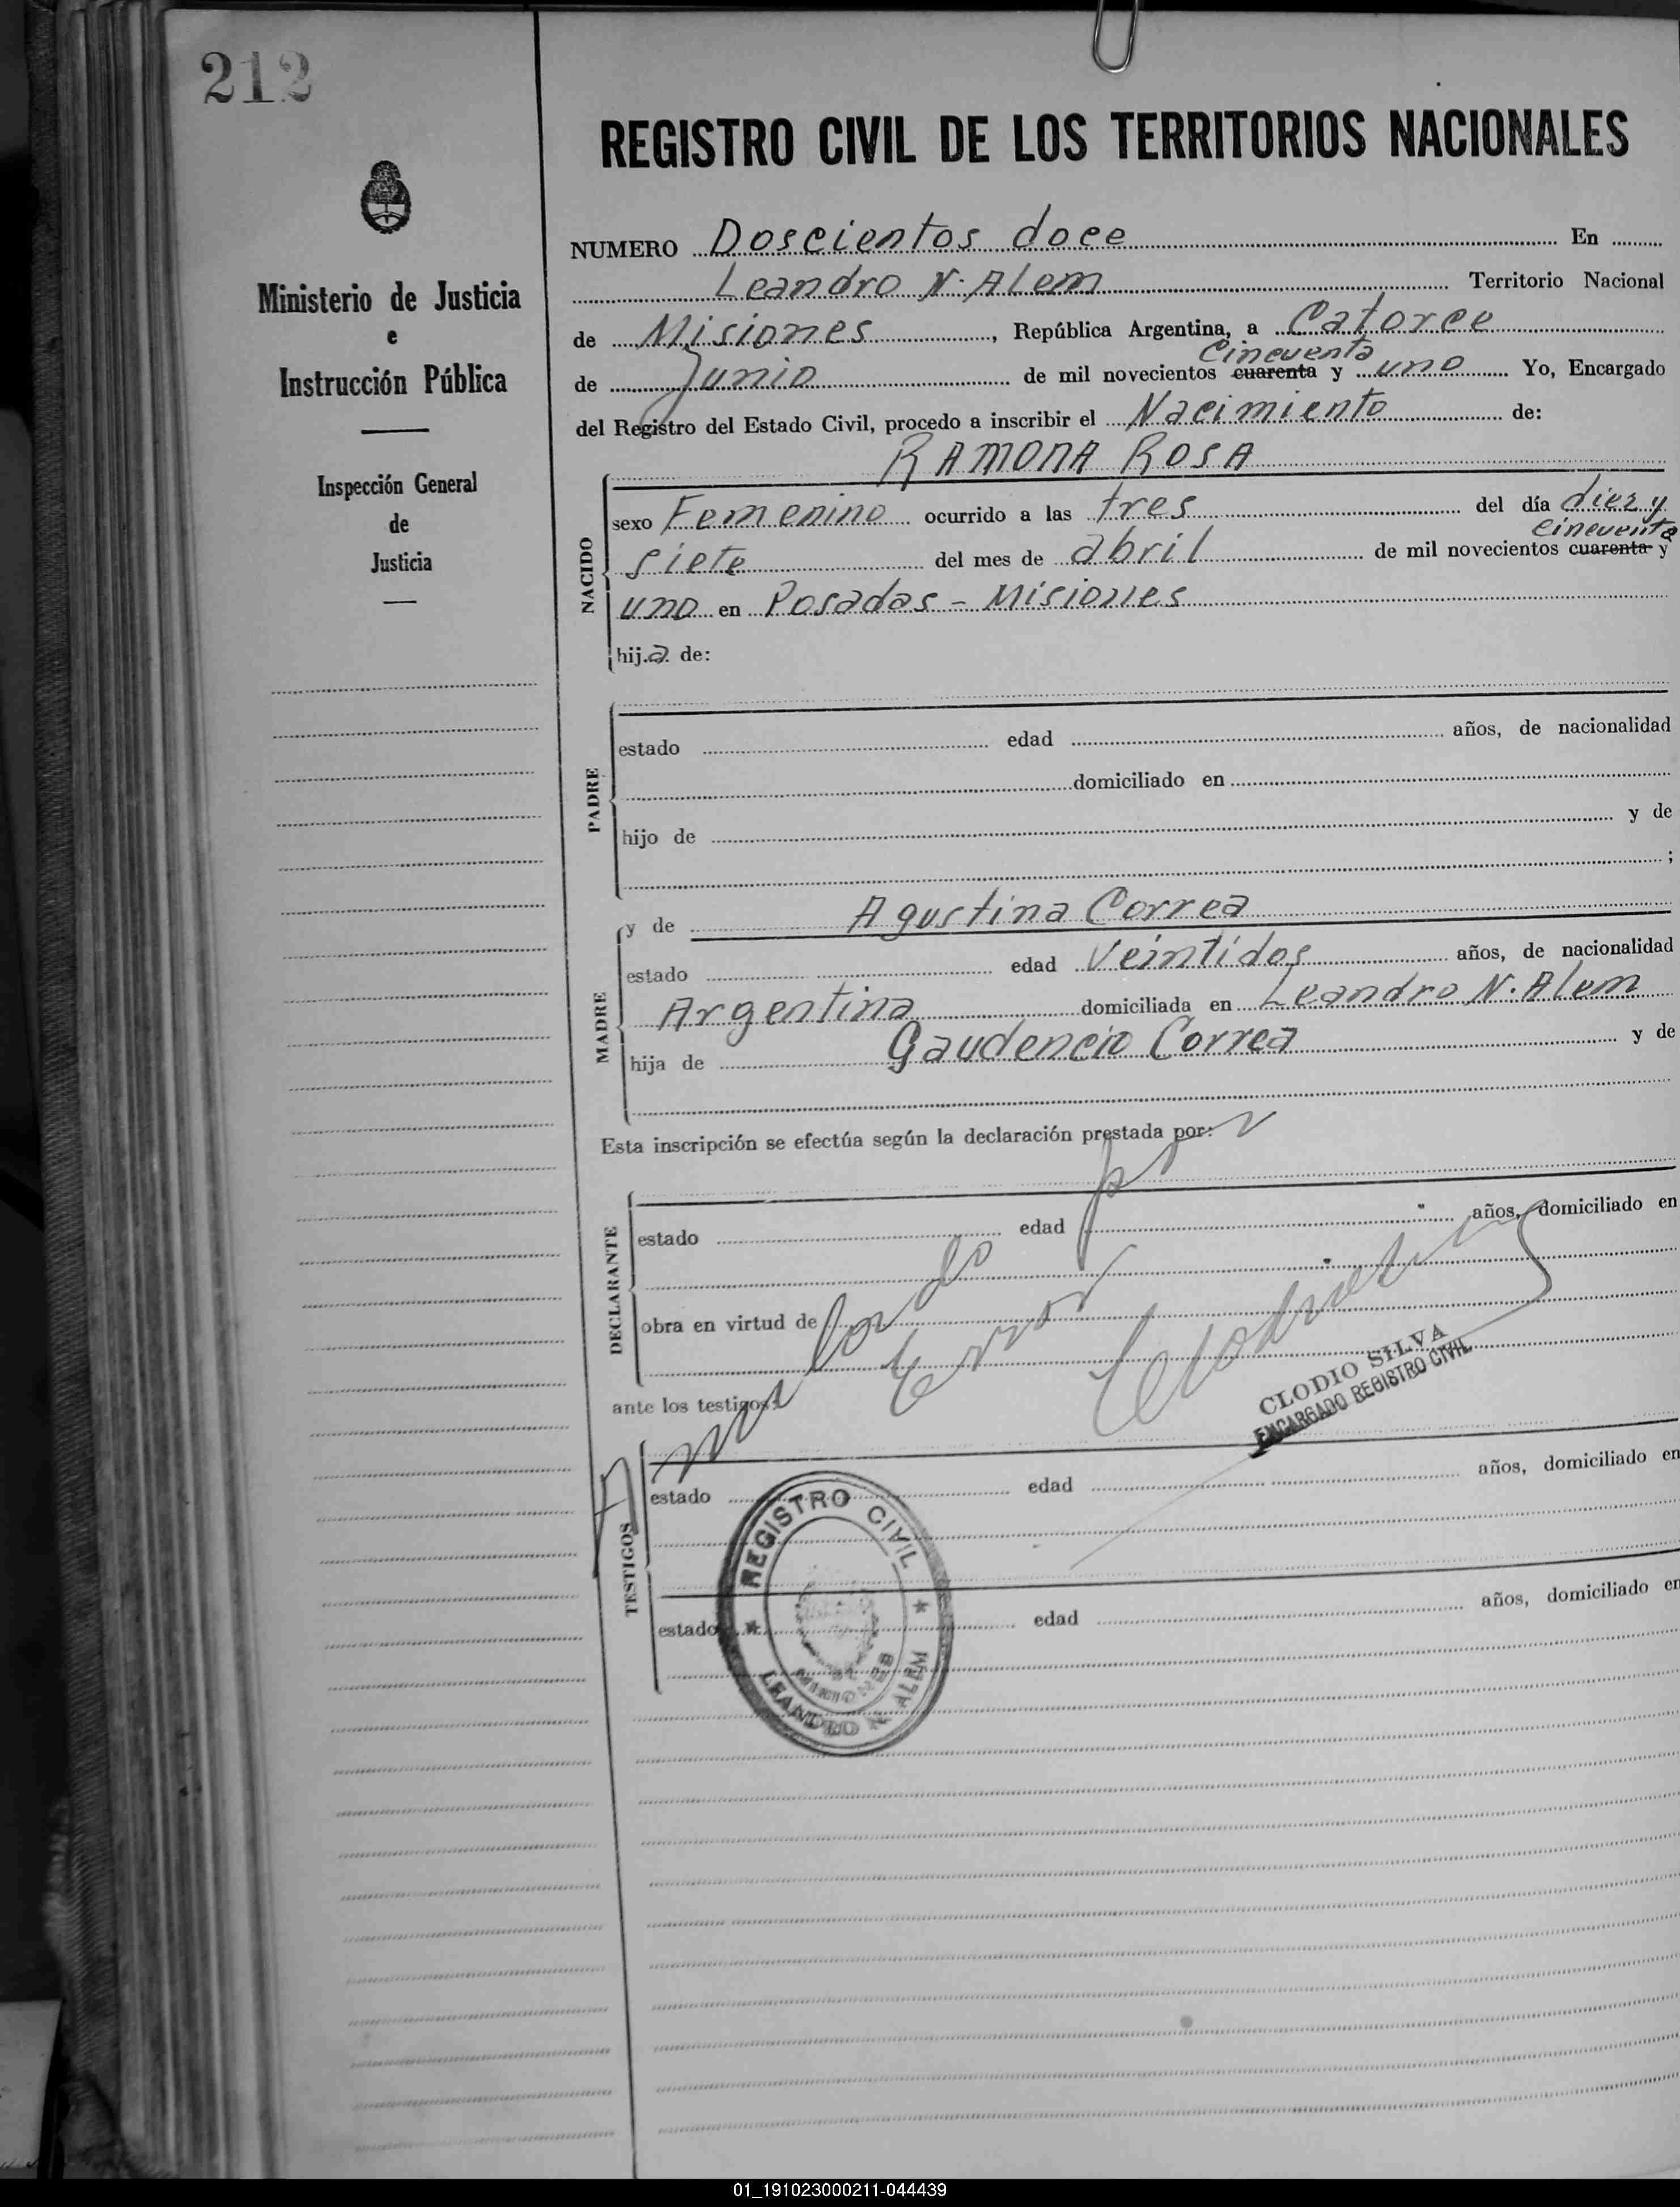 212
REGISTRO CIVIL DE LOS TERRITORIOS NACIONALES
Ministerio de Justicia
e
Instrucción Pública
Inspección General
de
Justicia
NUMERO Doscientos doce En
Leandro N. Alem Territorio Nacional
de Misiones, República Argentina, a Catorce
Cincuenta
de Junio de mil novecientos cuarenta y uno Yo, Encargado
del Registro del Estado Civil, procedo a inscribir el Nacimiento de:
RAMONA ROSA
NACIDO
sexo Femenino ocurrido a las tres del día diez y
cincuenta
siete del mes de abril de mil novecientos cuarenta y
uno en Posadas - Misiones
hija de:
PADRE
estado edad años, de nacionalidad
domiciliado en
hijo de y de
;
MADRE
y de Agustina Correa
estado edad Veintidos años, de nacionalidad
Argentina domiciliada en Leandro N. Alem
hija de Gaudencio Correa y de
Esta inscripción se efectúa según la declaración prestada por:
DECLARANTE
estado edad años, domiciliado en
obra en virtud de
ante los testigos:
Anulado por
error
CLODIO SILVA
ENCARGADO REGISTRO CIVIL
TESTIGOS
estado edad años, domiciliado en
estado edad años, domiciliado en
REGISTRO CIVIL
MISIONES
LEANDRO N. ALEM
01_191023000211-044439